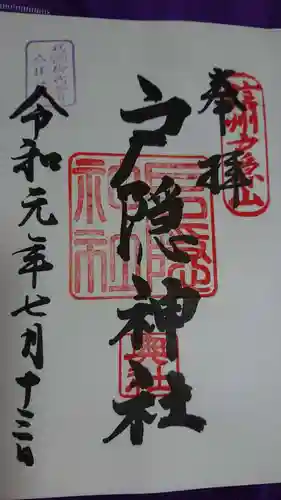 奉拝
信州戸隠山
戸隠神社
戸隠神社
奥社
令和元年七月十三日